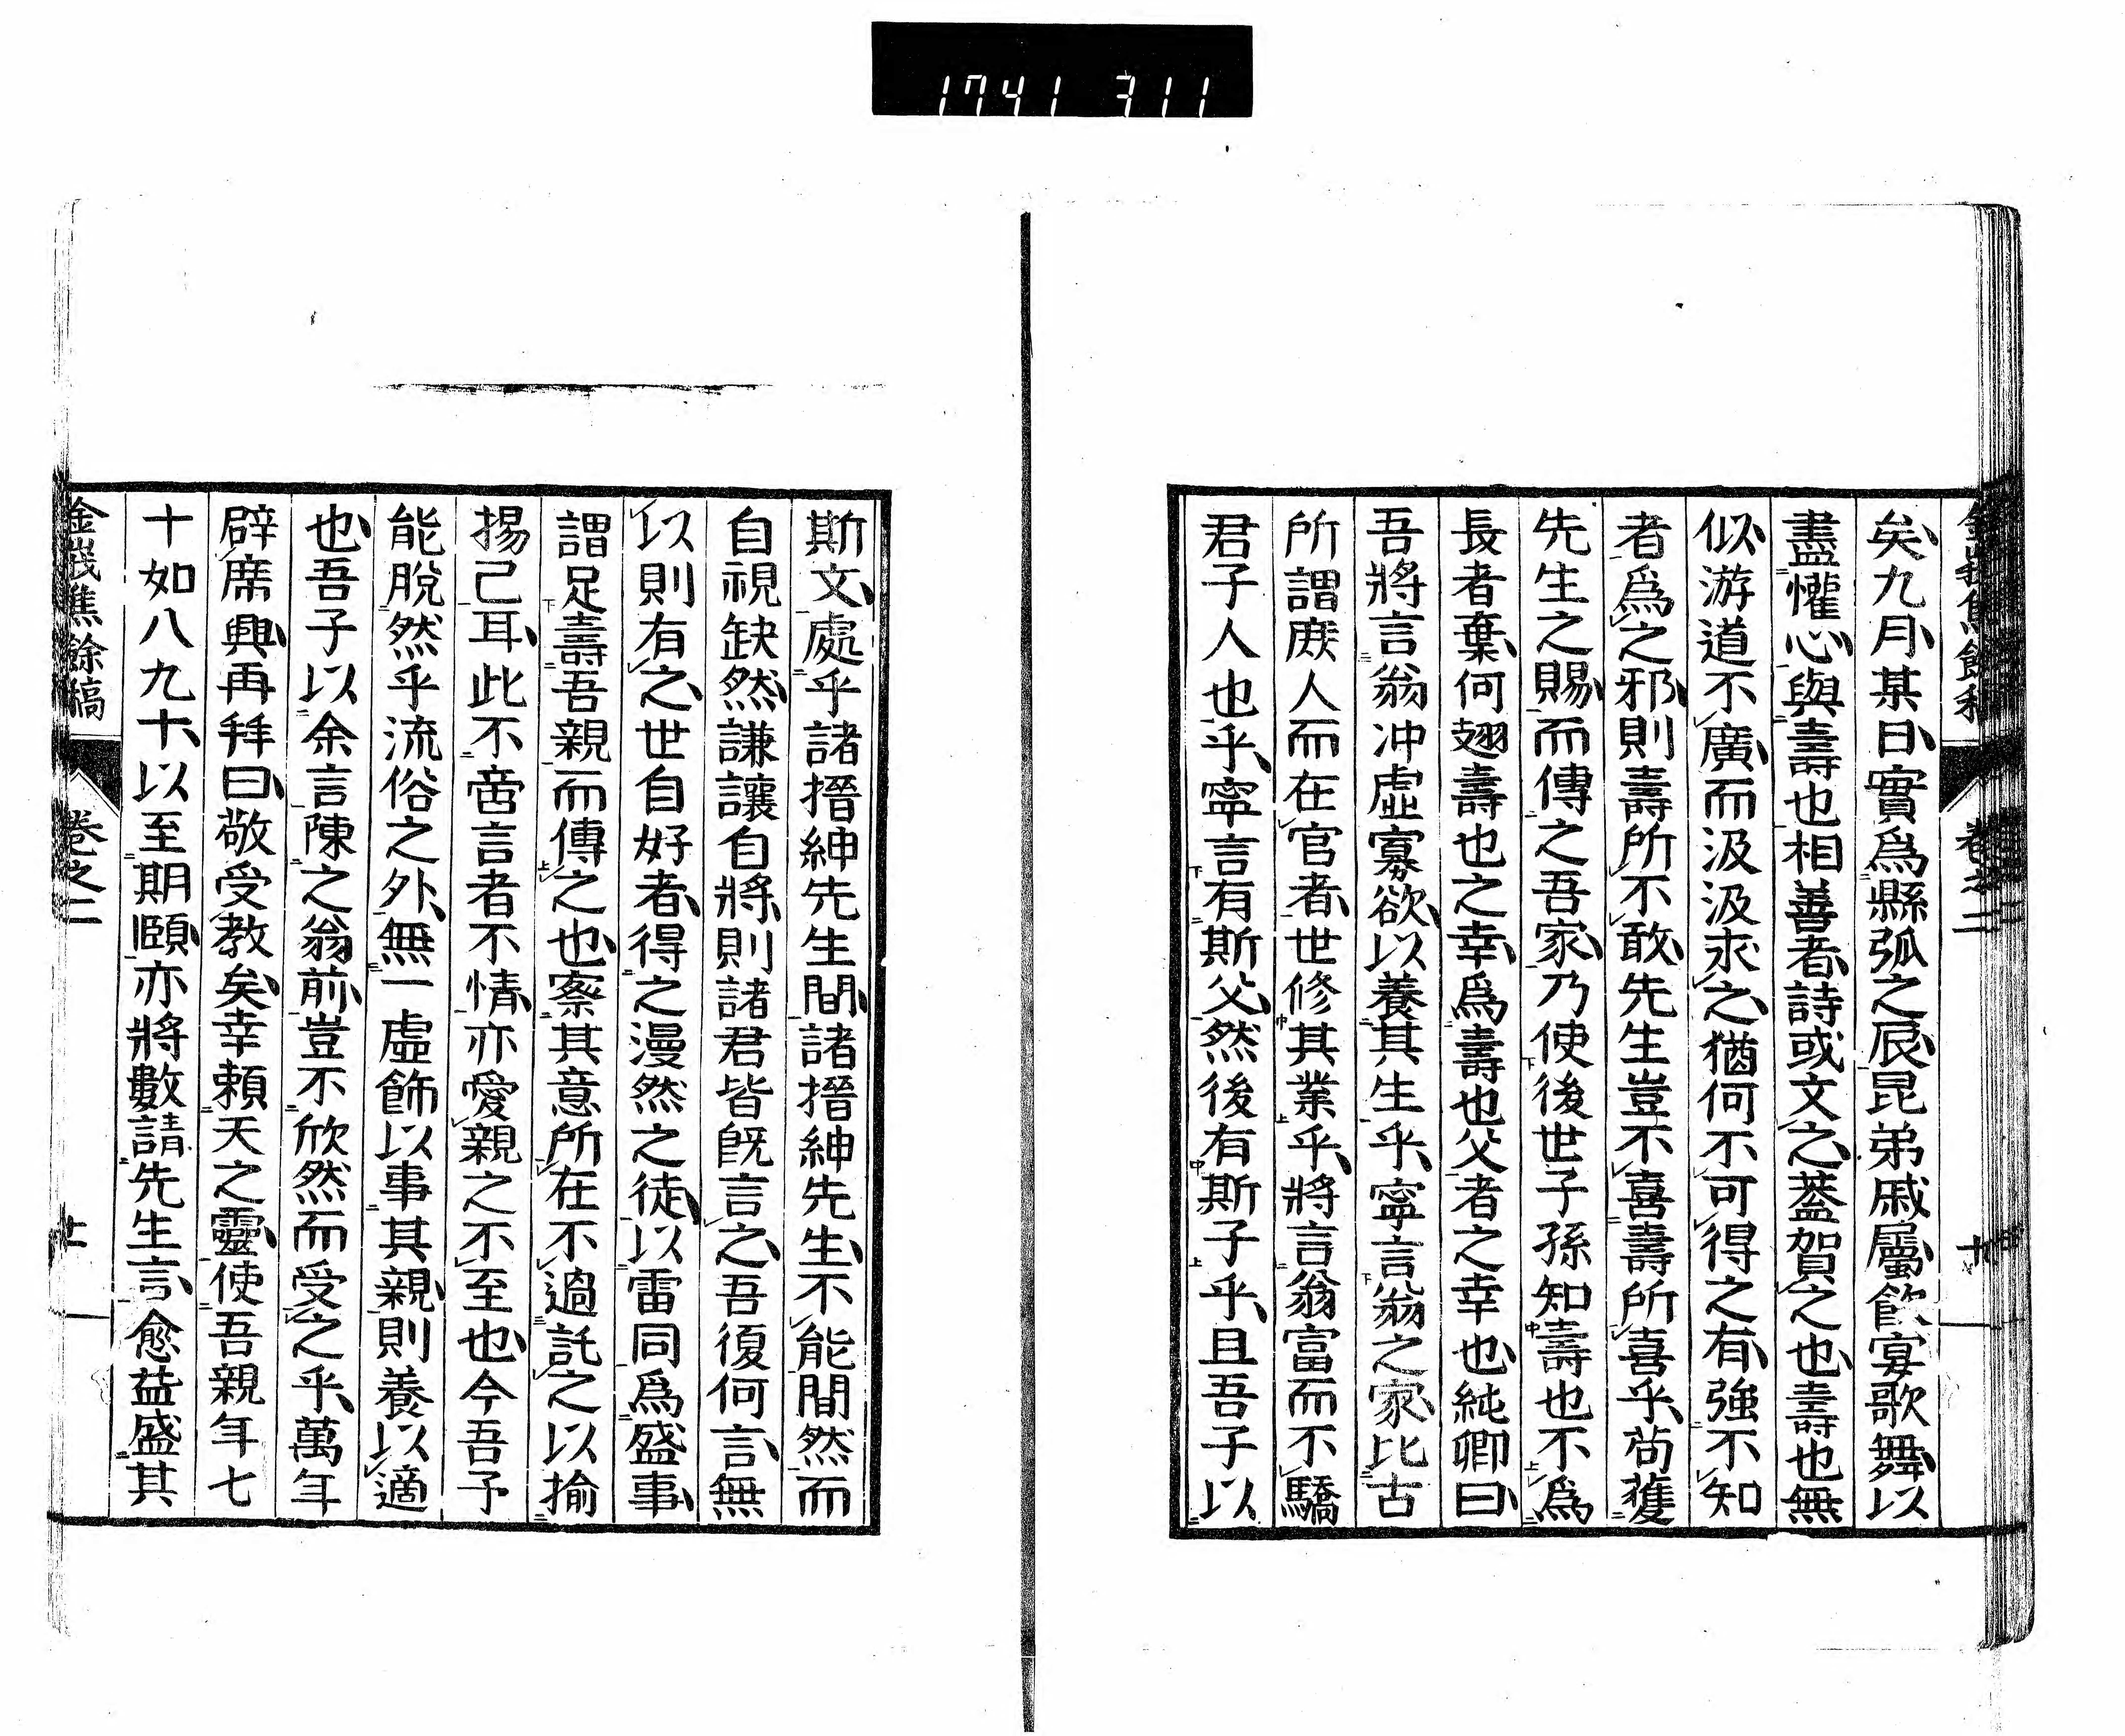 1741 311
矣九月某日實爲縣弧之辰昆弟戚屬飮宴歌舞以
盡懽心與壽也相善者詩或文之蓋賀之也壽也無
似游道不廣而汲汲求之猶何不可得之有強不知
者爲之邪則壽所不敢先生豈不喜壽所喜乎苟獲
先生之賜而傳之吾家乃使後世子孫知壽也不爲
長者棄何翅壽也之幸爲壽也父者之幸也純卿曰
吾將言翁冲虛寡欲以養其生乎寧言翁之家比古
所謂庶人而在官者世修其業乎將言翁富而不驕
君子人也乎寧言有斯父然後有斯子乎且吾子以
斯文處乎諸搢紳先生間諸搢紳先生不能間然而
自視缺然謙讓自將則諸君皆旣言之吾復何言無
以則有之世自好者得之漫然之徒以雷同爲盛事
謂足壽吾親而傳之也察其意所在不過託之以揄
揚己耳此不啻言者不情亦愛親之不至也今吾予
能脫然乎流俗之外無一虛飾以事其親則養以適
也吾子以余言陳之翁前豈不欣然而受之乎萬年
辟席興再拜曰敬受教矣幸賴天之靈使吾親年七
十如八九十以至期頤亦將數請先生言愈益盛其
金峨焦餘稿 卷之二